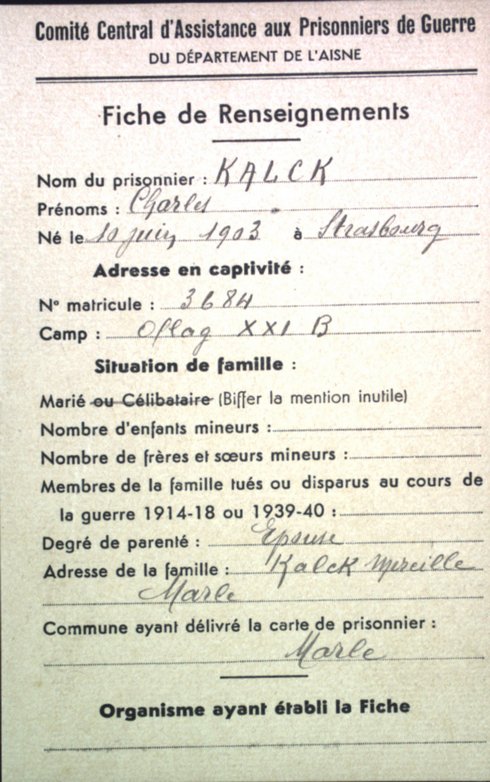 Comité Central d'Assistance aux Prisonniers de Guerre
DU DÉPARTEMENT DE L'AISNE
Fiche de Renseignements
Nom du prisonnier : KALCK
Prénoms : Charles
Né le 10 juin 1903 à Strasbourg
Adresse en captivité :
N° matricule : 3684
Camp : Oflag XXI B
Situation de famille :
Marié ou Célibataire (Biffer la mention inutile)
Nombre d'enfants mineurs :
Nombre de frères et sœurs mineurs :
Membres de la famille tués ou disparus au cours de
la guerre 1914-18 ou 1939-40 :
Degré de parenté : Epouse
Adresse de la famille : Kalck Mireille
Marle
Commune ayant délivré la carte de prisonnier :
Marle
Organisme ayant établi la Fiche